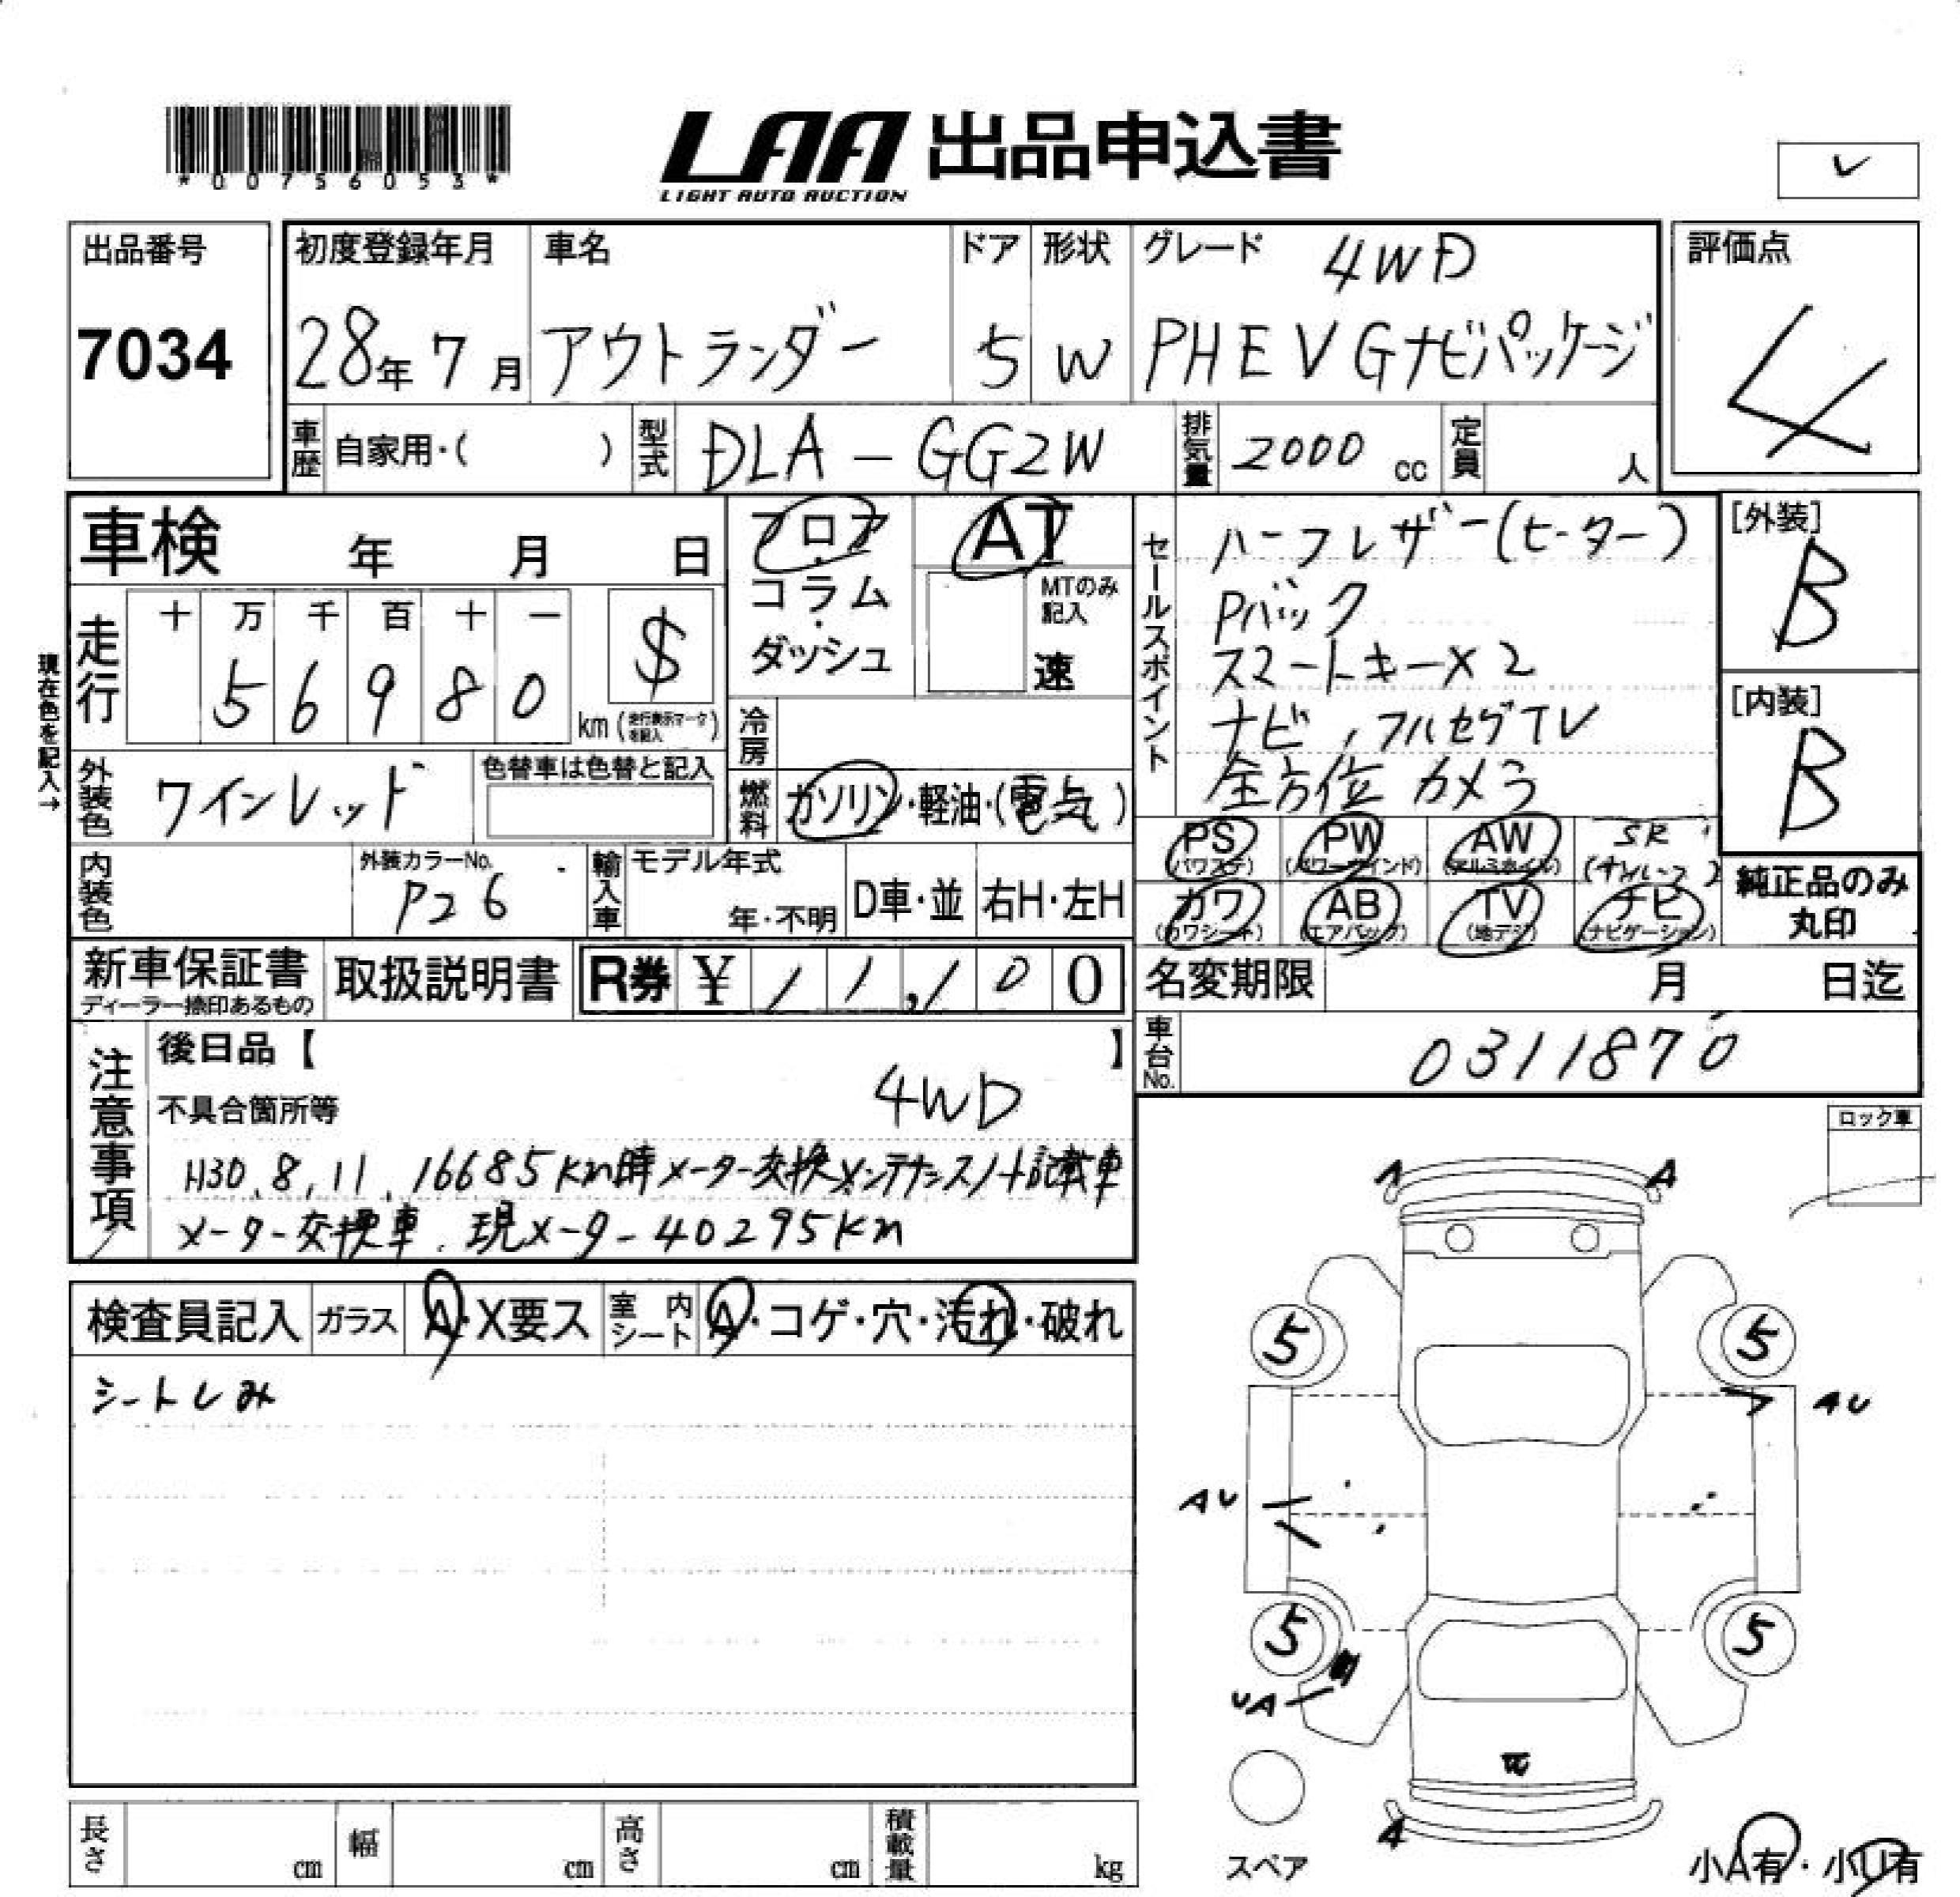 *00756053*
LAA 出品申込書
LIGHT AUTO AUCTION
レ
出品番号
7034
初度登録年月
28年 7月
車名
アウトランダー
ドア
5
形状
W
グレード 4WD
PHEV Gナビパッケージ
評価点
4
車歴 自家用・( )
型式 DLA-GG2W
排気量 2000 cc
定員 人
車検 年 月 日
フロア・コラム・ダッシュ
AT
MTのみ記入
速
現在色を記入→
走行
十 万 千 百 十 一
5 6 9 8 0
$
km (走行表示マークを記入)
冷房
外装色 ワインレッド
色替車は色替と記入
燃料 ガソリン・軽油・(電気)
内装色
外装カラーNo.
P26
輸入車
モデル年式
年・不明
D車・並
右H・左H
セールスポイント
ハーフレザー(ヒーター)
Pバック
スマートキー×2
ナビ,フルセグTV
全方位カメラ
[外装]
B
[内装]
B
PS (パワステ)
PW (パワーウインド)
AW (アルミホイル)
SR (サンルーフ)
カワ (カワシート)
AB (エアバッグ)
TV (地デジ)
ナビ (ナビゲーション)
純正品のみ丸印
新車保証書
ディーラー捺印あるもの
取扱説明書
R券 ¥ 11,100
名変期限 月 日迄
車台No. 0311870
注意事項
後日品【 】
不具合箇所等
4WD
H30.8.11.16685Km時メーター交換メンテナンスノート記載車
メーター交換車.現メーター40295Km
ロック車
検査員記入
ガラス A・X要ス
室内シート A・コゲ・穴・汚れ・破れ
シートしみ
A
A
5
5
AU
AU
5
5
UA
A
スペア
小A有・小U有
長さ cm
幅 cm
高さ cm
積載量 kg